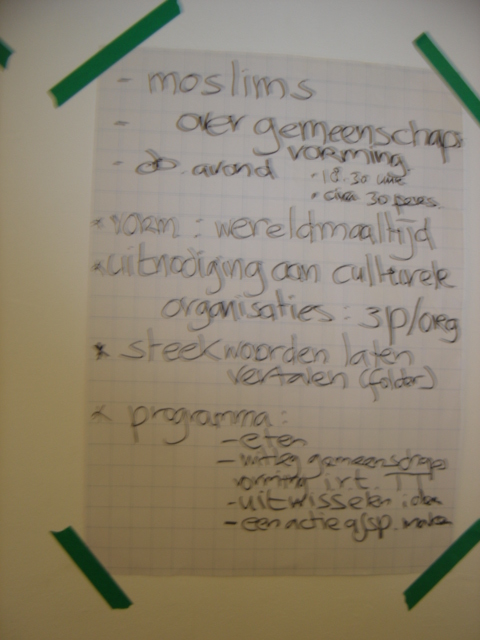 - moslims
- over gemeenschaps
vorming
- do. avond
• 18.30 uur
• circa 30 pers.
* vorm : wereldmaaltijd
* uitnodiging aan culturele
organisaties : 3p/org
* steekwoorden laten
vertalen (folder)
* programma :
- eten
- uitleg gemeenschaps
vorming i.r.t. TT
- uitwisselen
- een actie maken